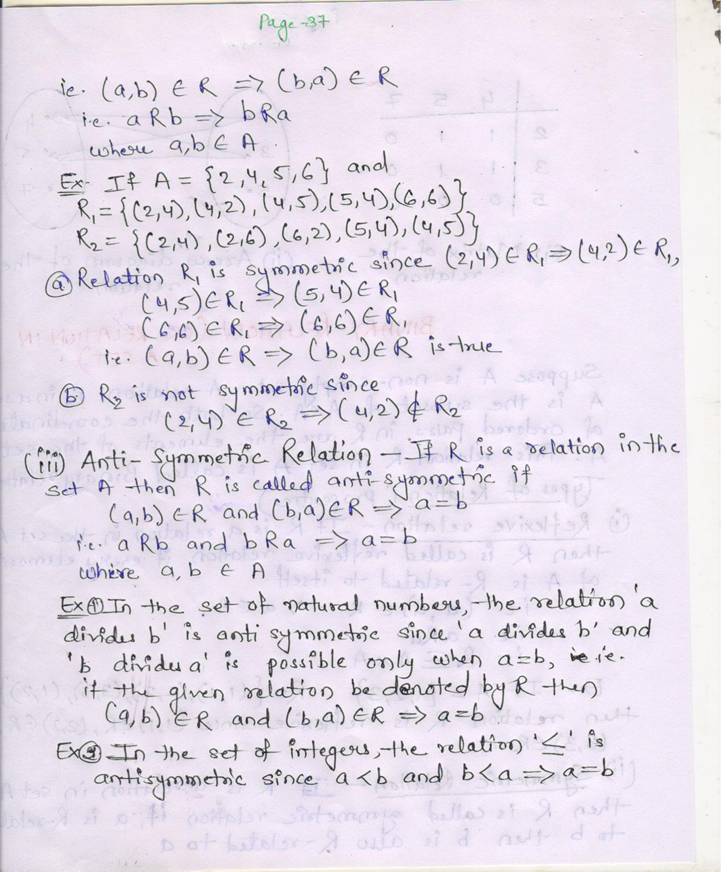 Page-37
ie. (a,b) ∈ R ⟹ (b,a) ∈ R
i.e. aRb ⟹ bRa
where a,b ∈ A
Ex- If A = {2,4,5,6} and
R₁= {(2,4),(4,2),(4,5),(5,4),(6,6)}
R₂= {(2,4),(2,6),(6,2),(5,4),(4,5)}
ⓐ Relation R₁ is symmetric since (2,4) ∈ R₁ ⟹ (4,2) ∈ R₁,
(4,5) ∈ R₁ ⟹ (5,4) ∈ R₁
(6,6) ∈ R₁ ⟹ (6,6) ∈ R₁
i.e. (a,b) ∈ R ⟹ (b,a) ∈ R is true
ⓑ R₂ is not symmetric since
(2,4) ∈ R₂ ⟹ (4,2) ∉ R₂
(iii) Anti-Symmetric Relation - If R is a relation in the
set A then R is called anti-symmetric if
(a,b) ∈ R and (b,a) ∈ R ⟹ a=b
i.e. aRb and bRa ⟹ a=b
where a,b ∈ A
Ex① In the set of natural numbers, the relation 'a
divides b' is anti symmetric since 'a divides b' and
'b divides a' is possible only when a=b, i.e.
if the given relation be denoted by R then
(a,b) ∈ R and (b,a) ∈ R ⟹ a=b
Ex② In the set of integers, the relation '≤' is
antisymmetric since a<b and b<a ⟹ a=b